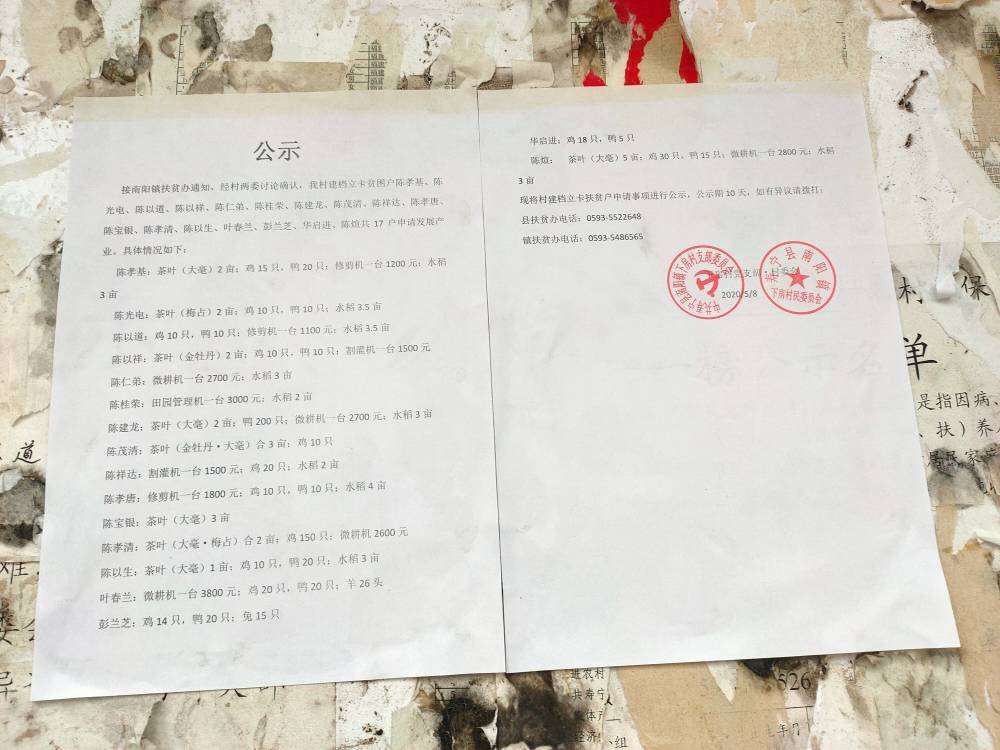 公示
接南阳镇扶贫办通知，经村两委讨论确认，我村建档立卡贫困户陈孝基、陈
光电、陈以道、陈以祥、陈仁弟、陈桂荣、陈建龙、陈茂清、陈祥达、陈孝唐、
陈宝银、陈孝清、陈以生、叶春兰、彭兰芝、华启进、陈煊共 17 户申请发展产
业。具体情况如下：
陈孝基：茶叶（大毫）2 亩；鸡 15 只，鸭 20 只；修剪机一台 1200 元；水稻
3 亩
陈光电：茶叶（梅占）2 亩；鸡 10 只，鸭 10 只；水稻 3.5 亩
陈以道；鸡 10 只，鸭 10 只；修剪机一台 1100 元；水稻 3.5 亩
陈以祥：茶叶（金牡丹）2 亩；鸡 10 只，鸭 10 只；割灌机一台 1500 元
陈仁弟：微耕机一台 2700 元；水稻 3 亩
陈桂荣：田园管理机一台 3000 元；水稻 2 亩
陈建龙：茶叶（大毫）2 亩；鸭 200 只；微耕机一台 2700 元；水稻 3 亩
陈茂清：茶叶（金牡丹·大毫）合 3 亩；鸡 10 只
陈祥达：割灌机一台 1500 元；鸡 20 只；水稻 2 亩
陈孝唐：修剪机一台 1800 元；鸡 10 只，鸭 10 只；水稻 4 亩
陈宝银：茶叶（大毫）3 亩
陈孝清：茶叶（大毫·梅占）合 2 亩；鸡 150 只；微耕机 2600 元
陈以生：茶叶（大毫）1 亩；鸡 10 只，鸭 20 只；水稻 3 亩
叶春兰：微耕机一台 3800 元；鸡 20 只，鸭 20 只；羊 26 头
彭兰芝：鸡 14 只，鸭 20 只；兔 15 只
华启进：鸡 18 只，鸭 5 只
陈煊： 茶叶（大毫）5 亩；鸡 30 只，鸭 15 只；微耕机一台 2800 元；水稻
3 亩
现将村建档立卡贫户申请事项进行公示，公示期 10 天，如有异议请拨打：
县扶贫办电话：0593-5522648
镇扶贫办电话：0593-5486565
中共寿宁县南阳镇下房村支部委员会
寿宁县南阳镇
下房村民委员会
2020/5/8
村 保
单
是指因病、
、扶）养
居民家庭
道
难
进农村
共寿宁
526
经济
组